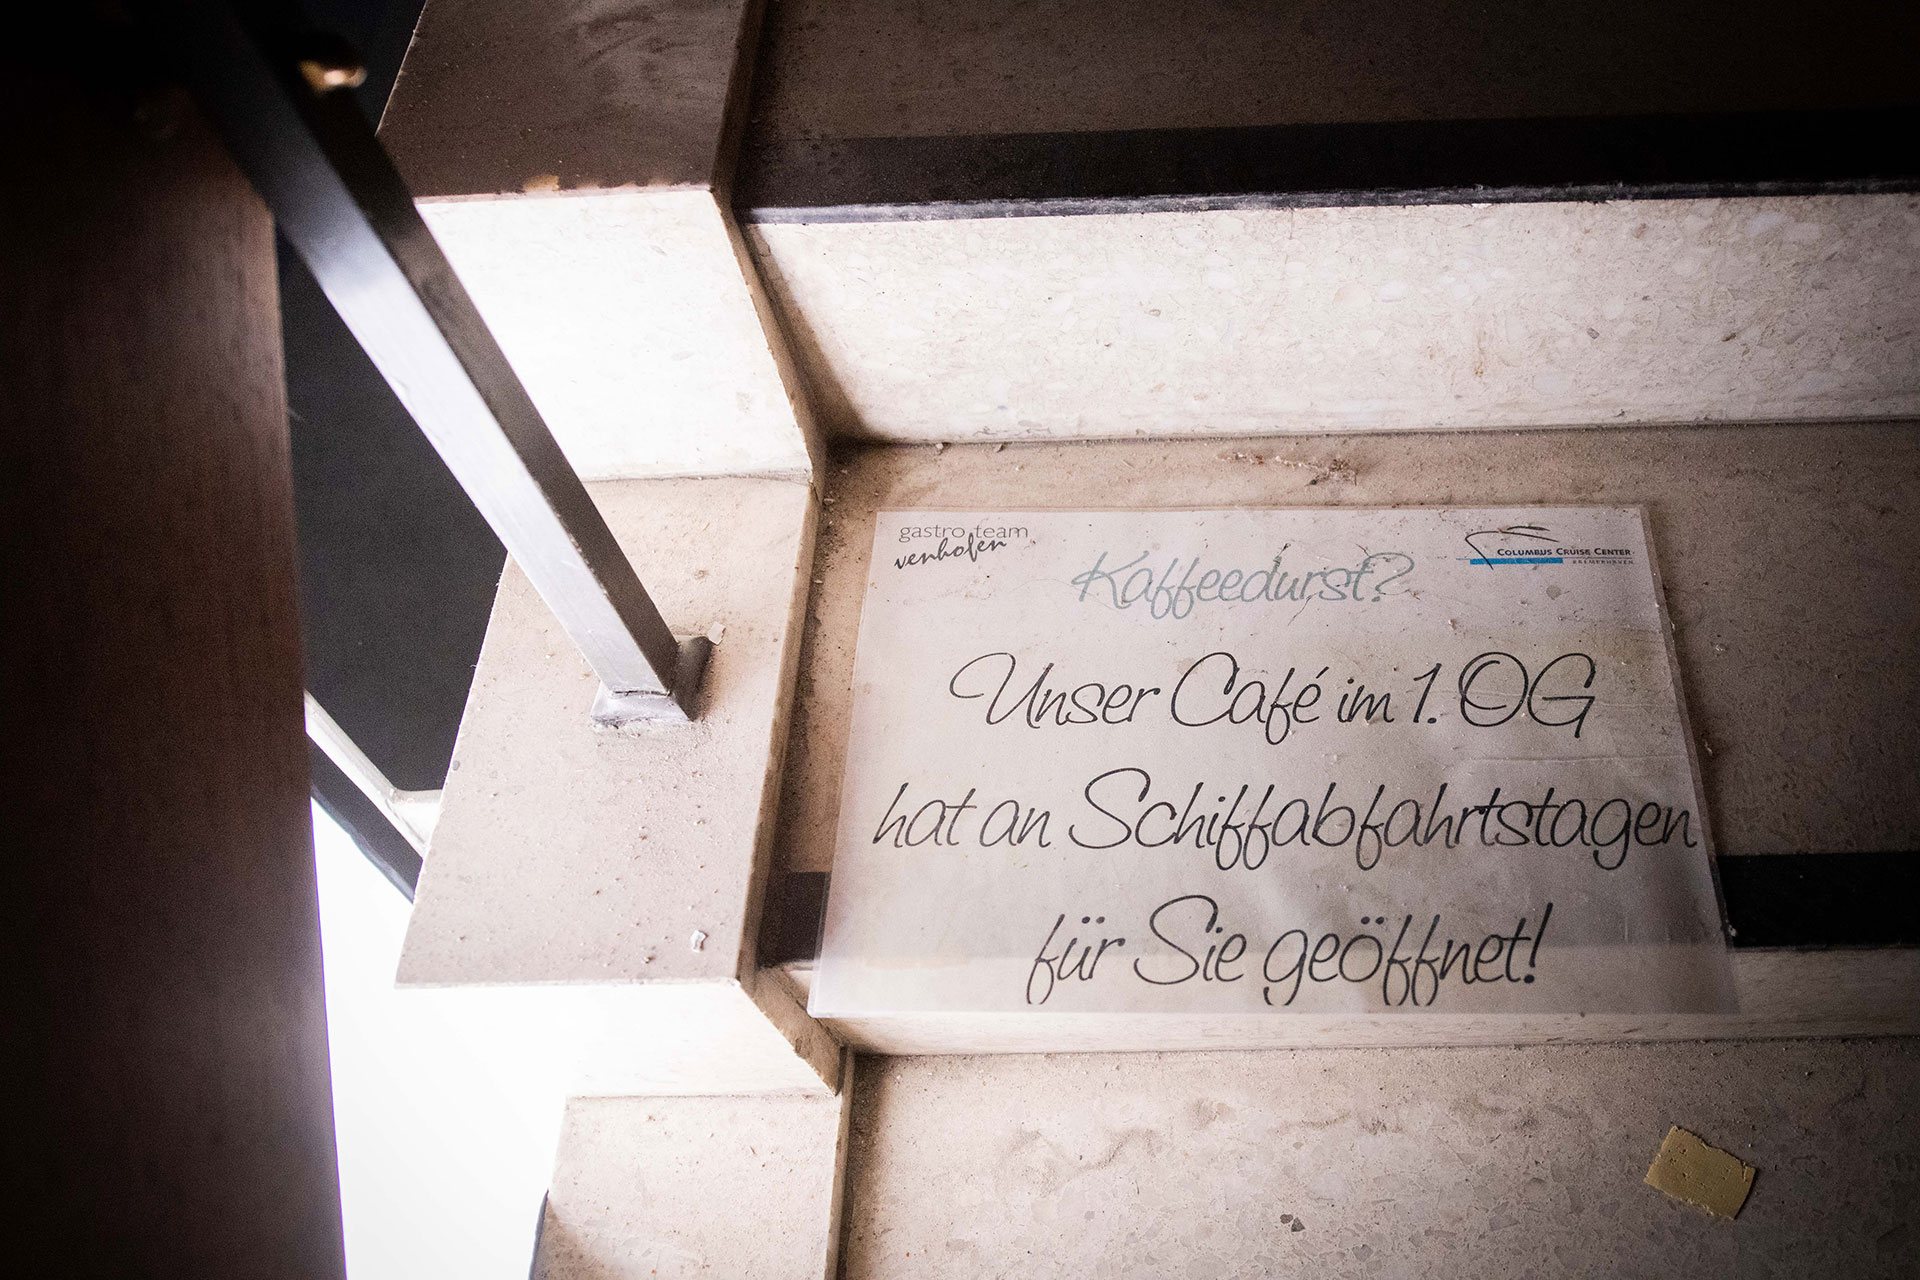 gastro team
venhofen
COLUMBUS CRUISE CENTER
BREMERHAVEN
Kaffeedurst?
Unser Café im 1. OG
hat an Schiffabfahrtstagen
für Sie geöffnet!